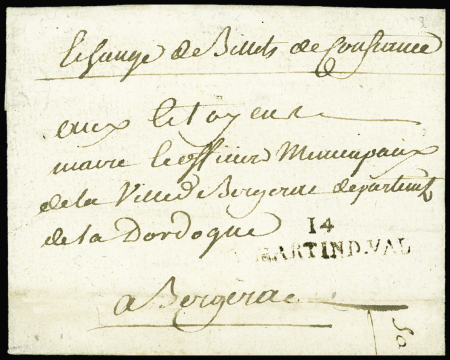 Echange de Billets de Confiance
aux Citoyens
maire & officiers Municipaux
de la Ville de Bergerac départemt
de la Dordogne
14
MARTIND.VAL
a Bergerac